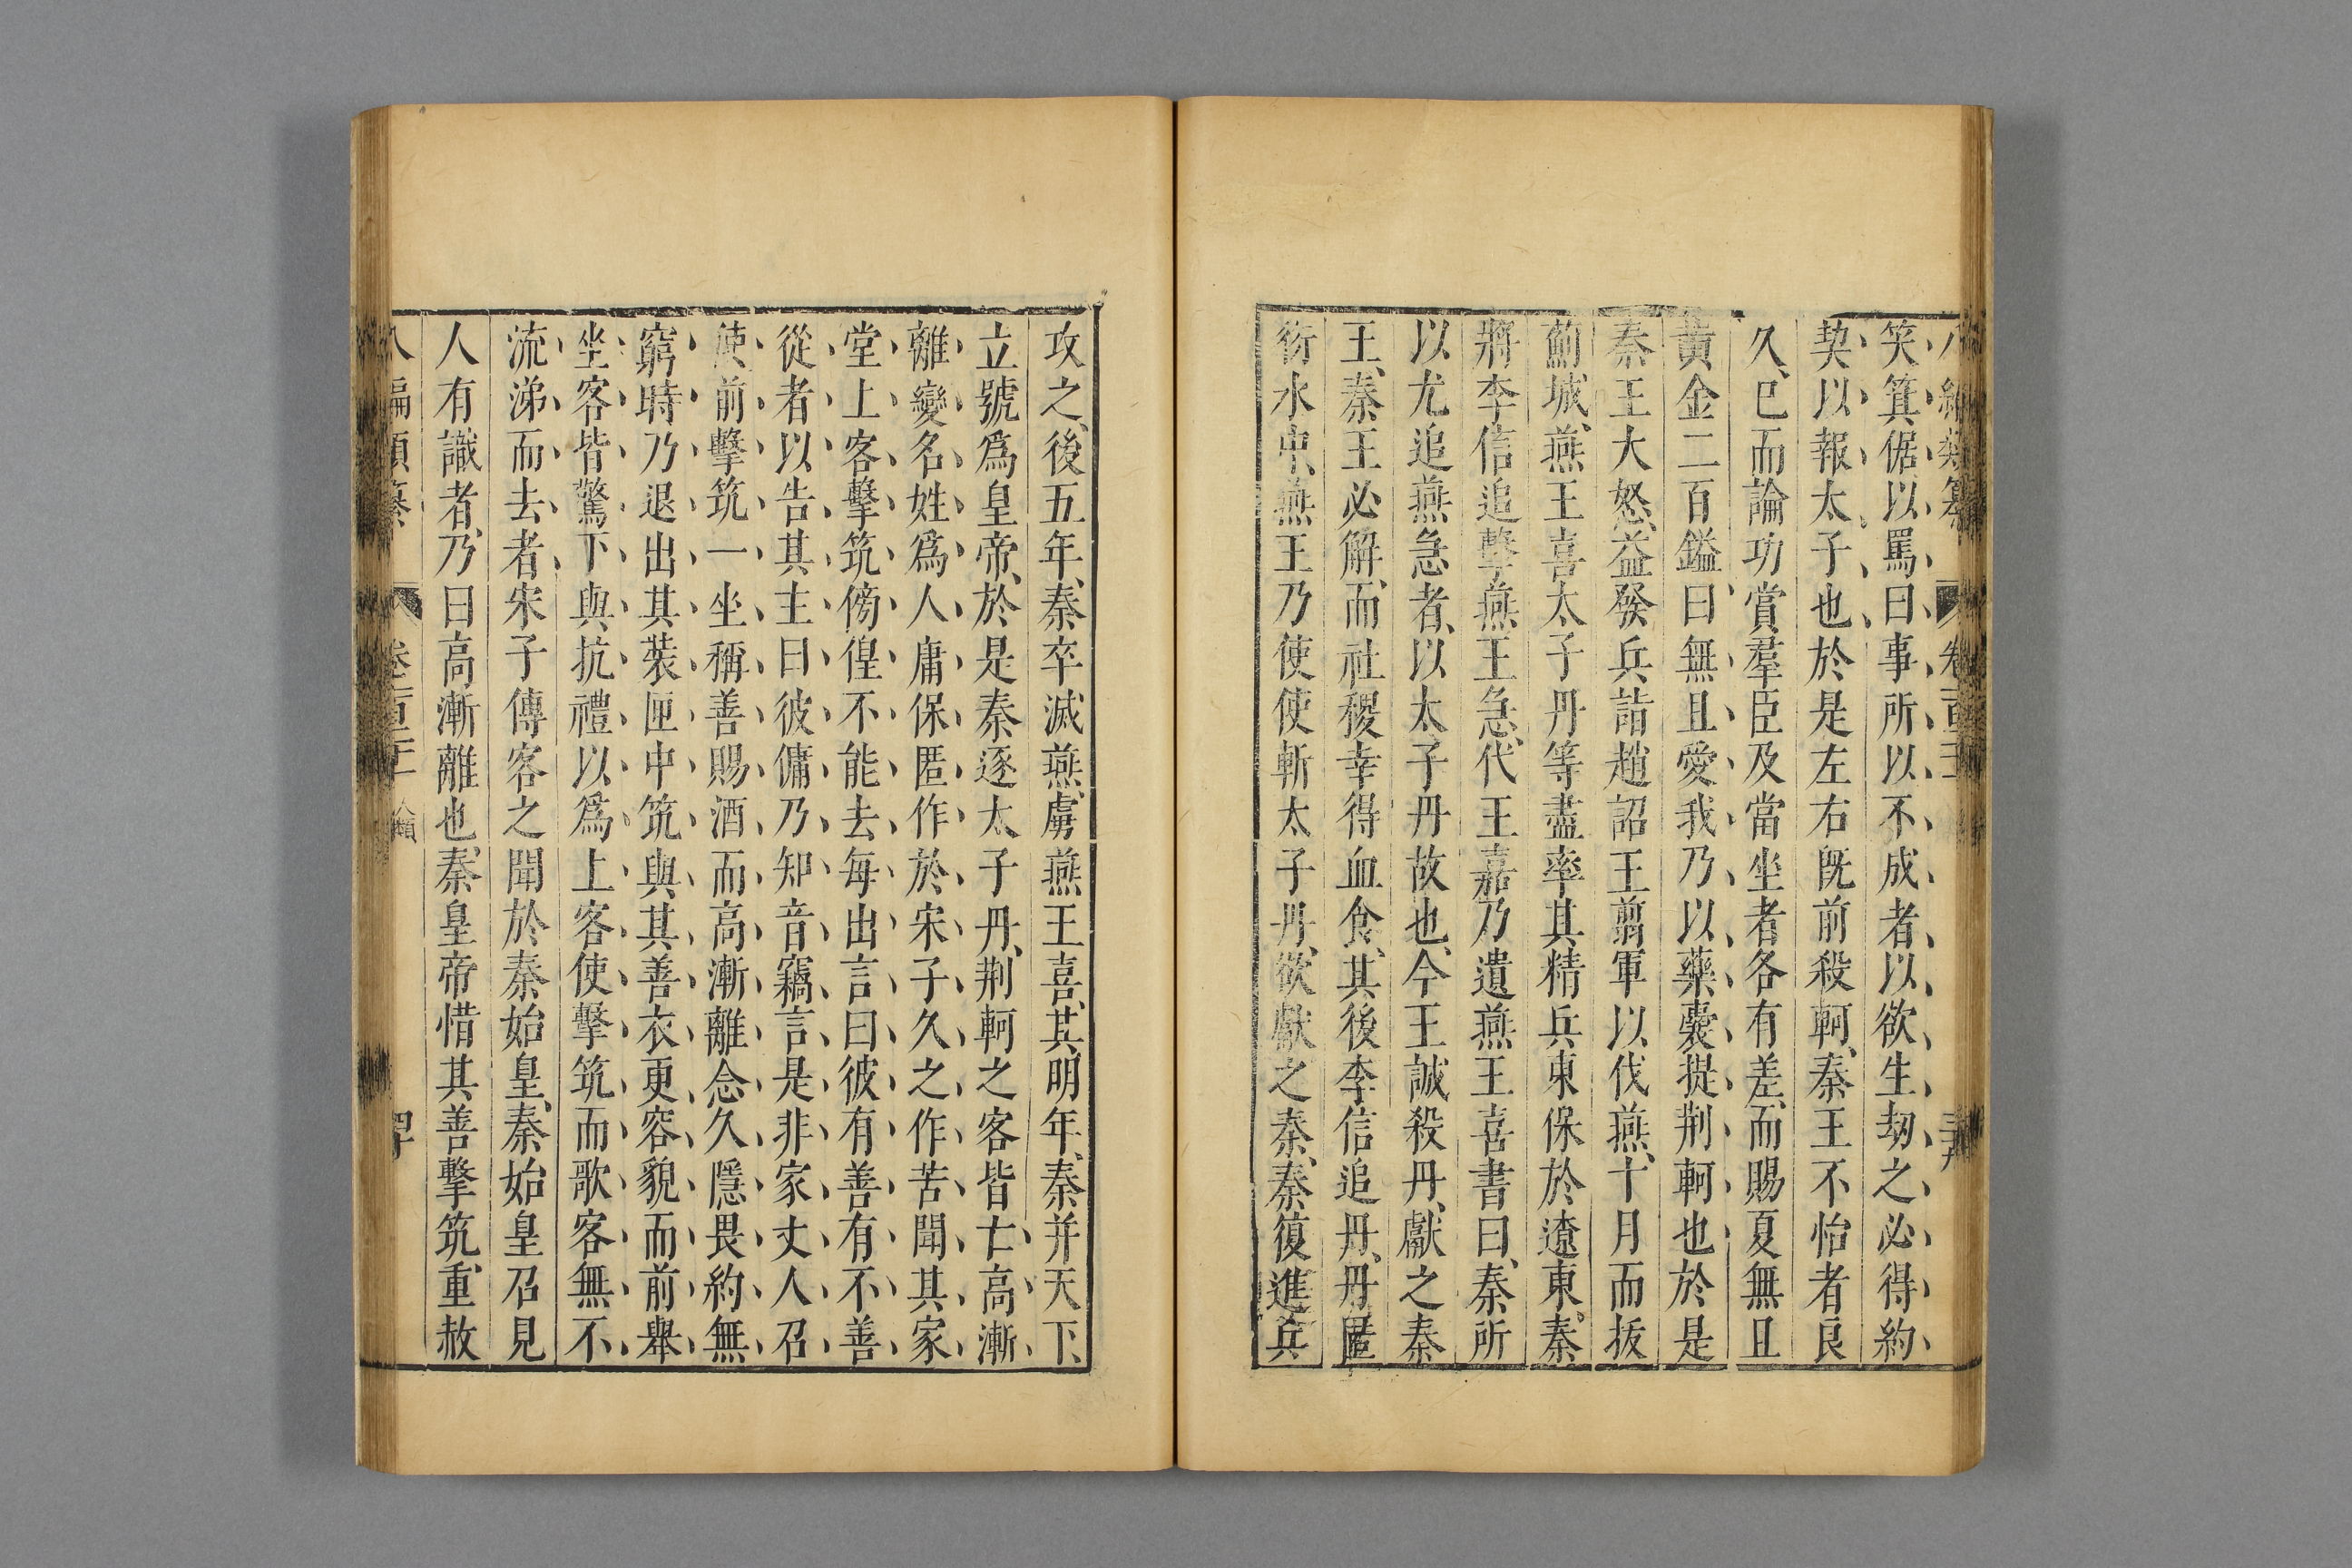 八編類纂 卷一百三十 三十九
笑箕倨以罵曰事所以不成者以欲生劫之必得約
契以報太子也於是左右旣前殺軻秦王不怡者良
久已而論功賞羣臣及當坐者各有差而賜夏無且
黃金二百鎰曰無且愛我乃以藥囊提荆軻也於是
秦王大怒益發兵詣趙詔王翦軍以伐燕十月而拔
薊城燕王喜太子丹等盡率其精兵東保於遼東秦
將李信追擊燕王急代王嘉乃遺燕王喜書曰秦所
以尤追燕急者以太子丹故也今王誠殺丹獻之秦
王秦王必解而社稷幸得血食其後李信追丹丹匿
衍水中燕王乃使使斬太子丹欲獻之秦秦復進兵
攻之後五年秦卒滅燕虜燕王喜其明年秦并天下
立號爲皇帝於是秦逐太子丹荆軻之客皆亡高漸
離變名姓爲人庸保匿作於宋子久之作苦聞其家
堂上客擊筑傍徨不能去每出言曰彼有善有不善
從者以告其主曰彼傭乃知音竊言是非家丈人召
使前擊筑一坐稱善賜酒而高漸離念久隱畏約無
窮時乃退出其裝匣中筑與其善衣更容貌而前舉
坐客皆驚下與抗禮以爲上客使擊筑而歌客無不
流涕而去者宋子傳客之聞於秦始皇秦始皇召見
人有識者乃曰高漸離也秦皇帝惜其善擊筑重赦
八編類纂 卷一百三十